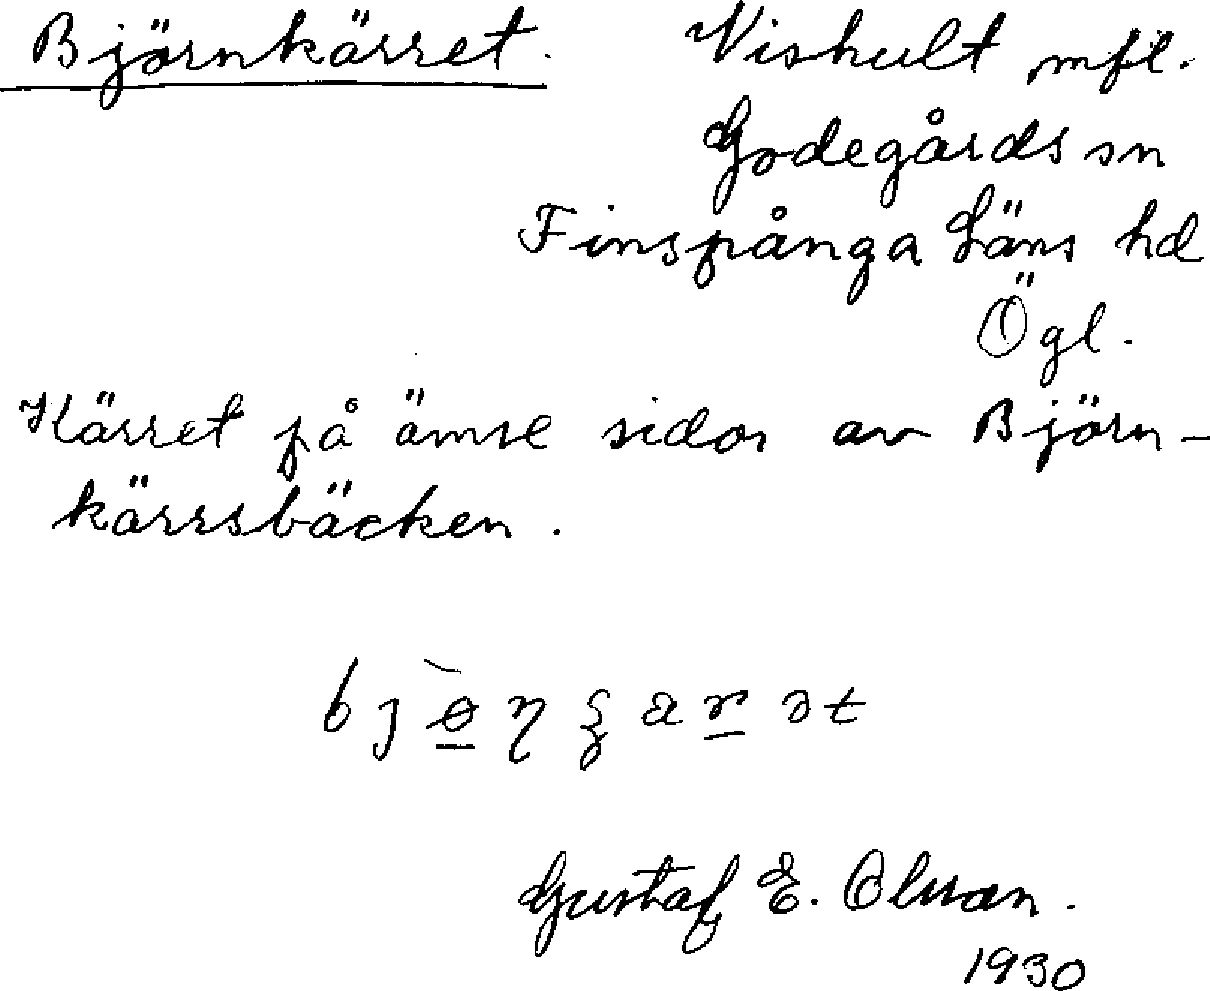 Björnkärret. Nishult mfl.
Godegårds sn
Finspånga Läns hd
Ögl.
Kärret på ömse sidor av Björn-
kärrsbäcken.
Gustaf E. Olsson.
1930